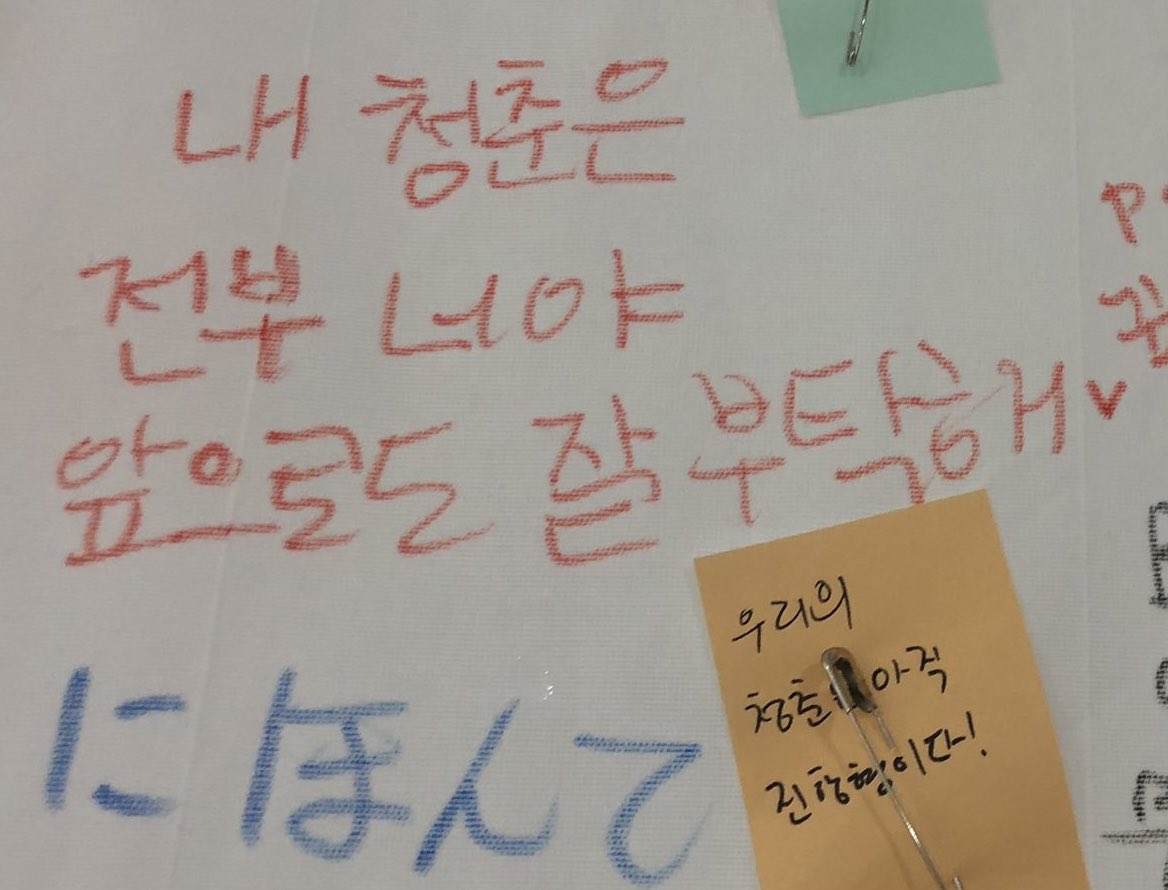 내 청춘은
전부 너야
앞으로도 잘 부탁해
우리의
청춘은 아직
진행형이다!
にほんで